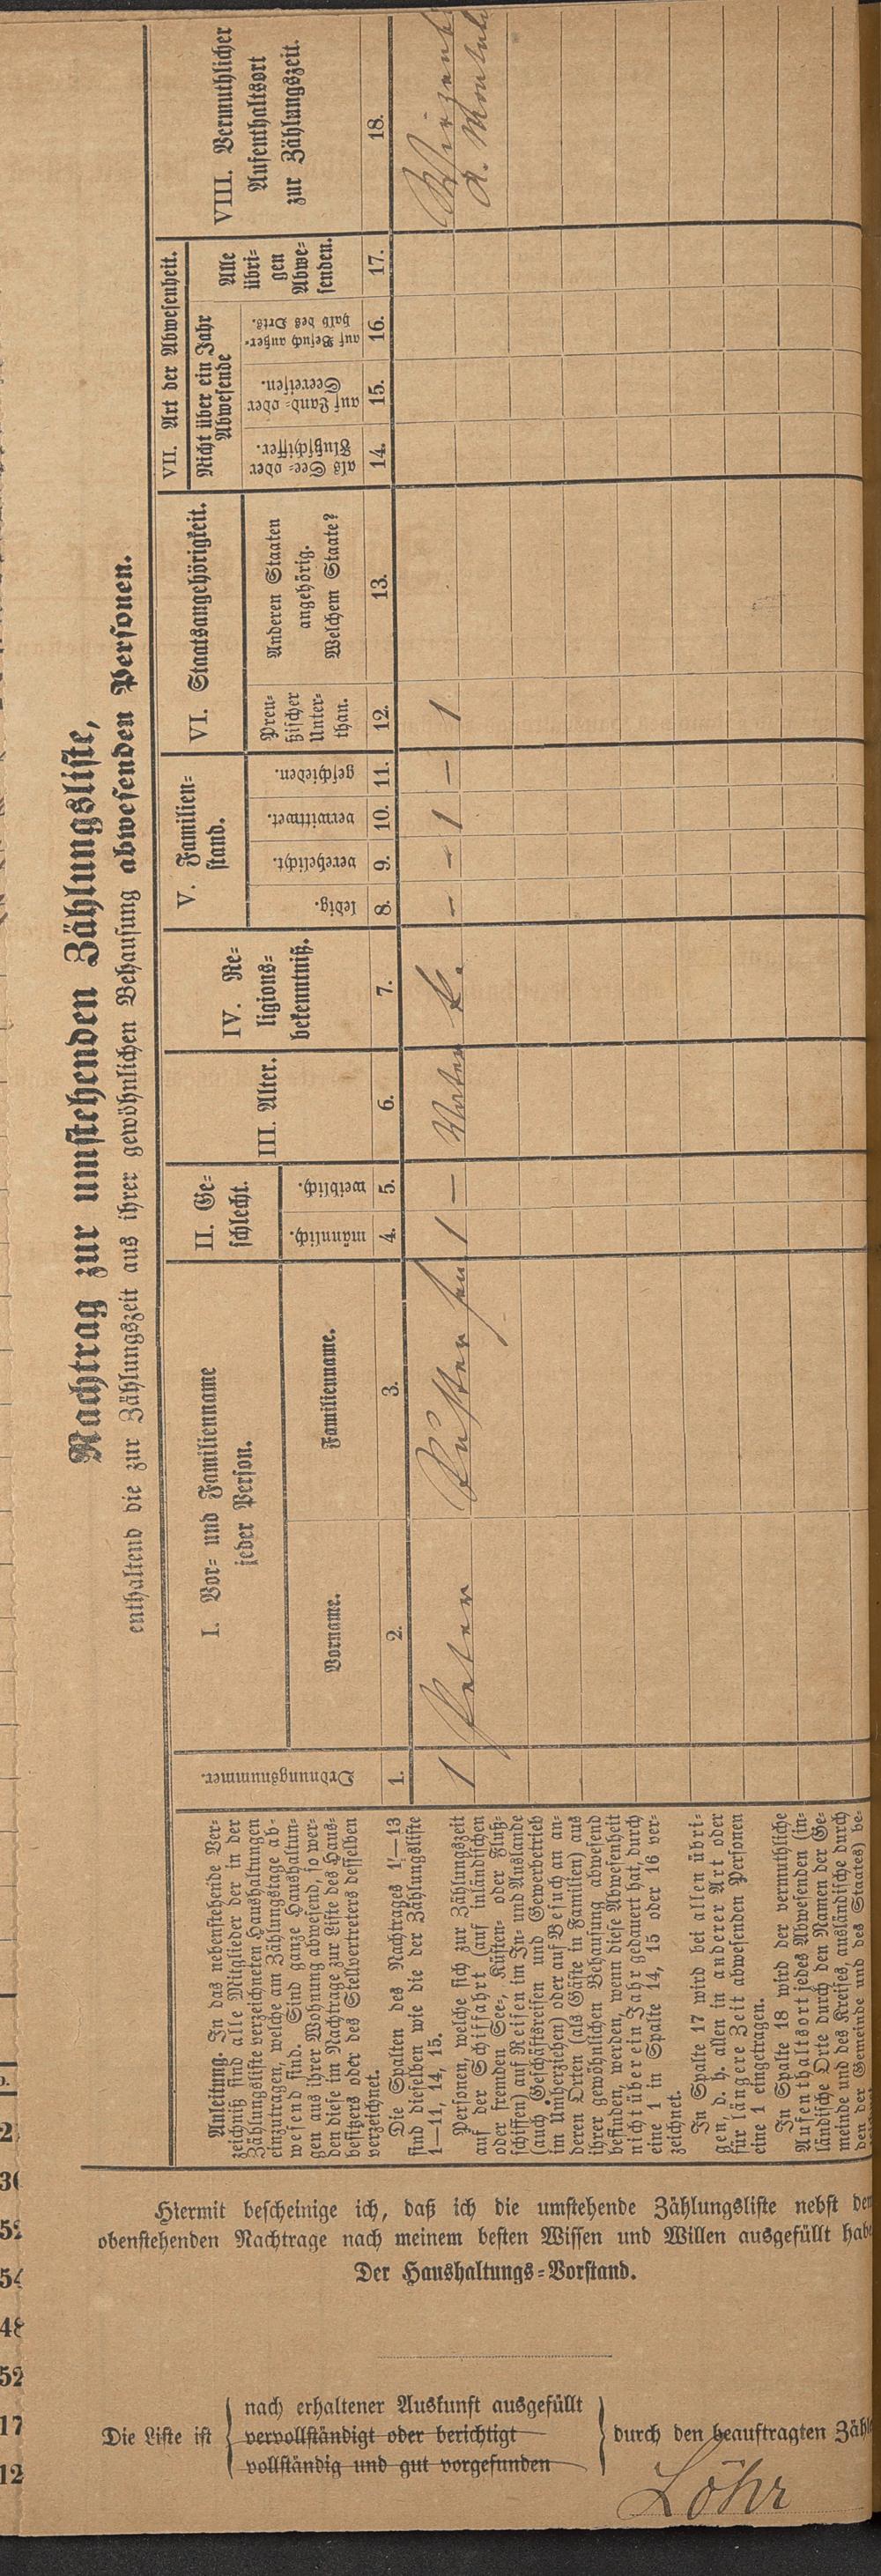 Nachtrag zur umstehenden Zählungsliste,
enthaltend die zur Zählungszeit aus ihrer gewöhnlichen Behausung abwesenden Personen.
Anleitung. In das nebenstehende Ver-
zeichniß sind alle Mitglieder der in der
Zählungsliste verzeichneten Haushaltungen
einzutragen, welche am Zählungstage ab-
wesend sind. Sind ganze Haushaltun-
gen aus ihrer Wohnung abwesend, so wer-
den diese im Nachtrage zur Liste des Haus-
besitzers oder des Stellvertreters desselben
verzeichnet.
Die Spalten des Nachtrages 1—13
sind dieselben wie die der Zählungsliste
1—11, 14, 15.
Personen, welche sich zur Zählungszeit
auf der Schiffahrt (auf inländischen
oder fremden See-, Küsten- oder Fluß-
schiffen) auf Reisen im In- und Auslande
(auch Geschäftsreisen und Gewerbetrieb
im Umherziehen) oder auf Besuch an an-
deren Orten (als Gäste in Familien) aus
ihrer gewöhnlichen Behausung abwesend
befinden, werden, wenn diese Abwesenheit
nicht über ein Jahr gedauert hat, durch
eine 1 in Spalte 14, 15 oder 16 ver-
zeichnet.
In Spalte 17 wird bei allen übri-
gen, d. h. allen in anderer Art oder
für längere Zeit abwesenden Personen
eine 1 eingetragen.
In Spalte 18 wird der vermuthliche
Aufenthaltsort jedes Abwesenden (in-
ländische Orte durch den Namen der Ge-
meinde und des Kreises, ausländische durch
den der Gemeinde und des Staates) be-
Ordnungsnummer.
I. Vor- und Familienname
jeder Person.
Vorname.
Familienname.
II. Ge-
schlecht.
männlich.
weiblich.
III. Alter.
IV. Re-
ligions-
bekenntniß.
V. Familien-
stand.
ledig.
verehelicht.
verwittwet.
geschieden.
VI. Staatsangehörigkeit.
Preu-
ßischer
Unter-
than.
Anderen Staaten
angehörig.
Welchem Staate?
VII. Art der Abwesenheit.
Nicht über ein Jahr
Abwesende
als See- oder
Flußschiffer.
auf Land- oder
Seereisen.
auf Besuch außer-
halb des Orts.
Alle
übri-
gen
Abwe-
senden.
VIII. Vermuthlicher
Aufenthaltsort
zur Zählungszeit.
1. 2. 3. 4. 5. 6. 7. 8. 9. 10. 11. 12. 13. 14. 15. 16. 17. 18.
1 Peter Küster sen 1 — Vater k. — — 1 — 1
Hiermit bescheinige ich, daß ich die umstehende Zählungsliste nebst dem
obenstehenden Nachtrage nach meinem besten Wissen und Willen ausgefüllt habe
Der Haushaltungs-Vorstand.
Die Liste ist
nach erhaltener Auskunft ausgefüllt
vervollständigt oder berichtigt
vollständig und gut vorgefunden
durch den beauftragten Zähl
Löhr